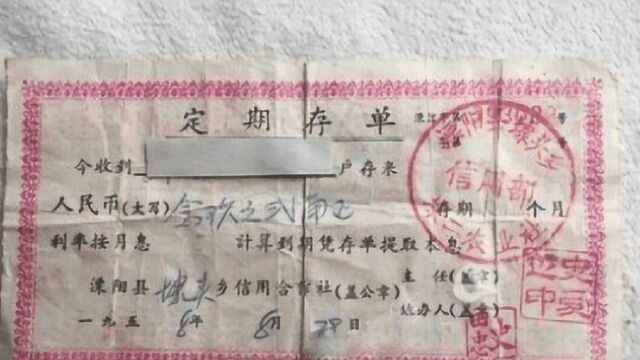 定期存单
今收到 户存来
人民币(大写) 玖元弍角正 存期 个月
利率按月息 计算到期凭存单提取本息
溧阳县 埭头乡信用合作社(盖公章) 主任(盖章)
经办人(盖章)
一九五8年8月29日
信用部
农业社
史
印